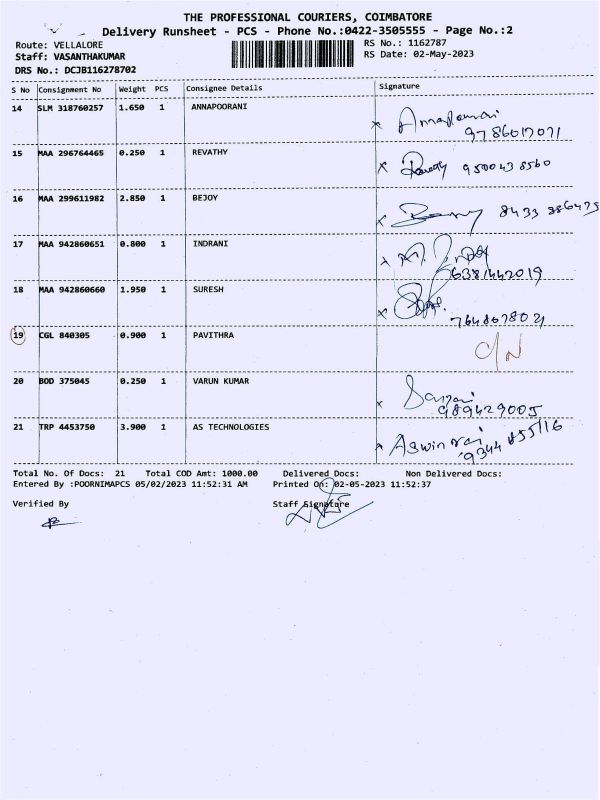 THE PROFESSIONAL COURIERS, COIMBATORE
Delivery Runsheet - PCS - Phone No.:0422-3505555 - Page No.:2
Route: VELLALORE
RS No.: 1162787
Staff: VASANTHAKUMAR
RS Date: 02-May-2023
DRS No.: DCJB116278702
S No Consignment No Weight PCS Consignee Details Signature
14 SLM 318760257 1.650 1 ANNAPOORANI
9786017071
15 MAA 296764465 0.250 1 REVATHY
9500438560
16 MAA 299611982 2.850 1 BEJOY
8433 886475
17 MAA 942860651 0.800 1 INDRANI
6381442019
18 MAA 942860660 1.950 1 SURESH
7648678021
19 CGL 840305 0.900 1 PAVITHRA C/N
20 BOD 375045 0.250 1 VARUN KUMAR
989429005
21 TRP 4453750 3.900 1 AS TECHNOLOGIES Aswin raj
9344 855116
Total No. Of Docs: 21 Total COD Amt: 1000.00 Delivered Docs: Non Delivered Docs:
Entered By :POORNIMAPCS 05/02/2023 11:52:31 AM Printed On: 02-05-2023 11:52:37
Verified By Staff Signature